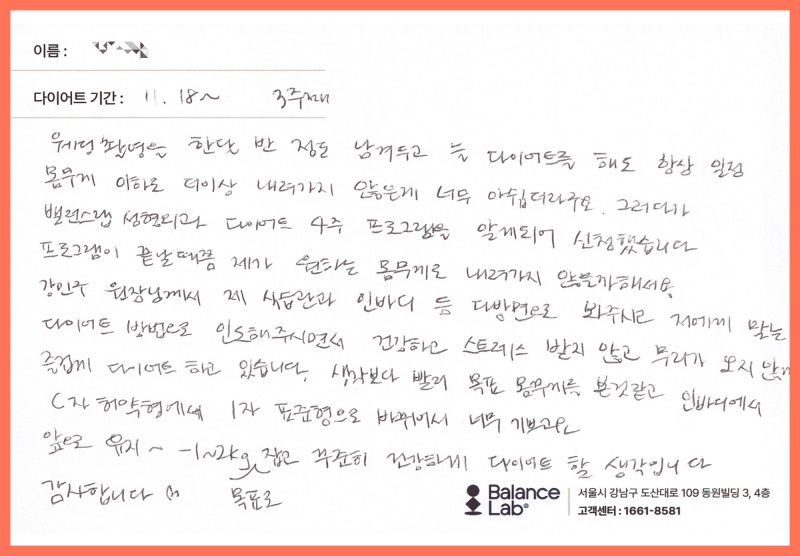 이름 :
다이어트 기간 : 11. 18~ 3주째
웨딩 촬영을 한달 반 정도 남겨두고 늘 다이어트를 해도 항상 일정
몸무게 이하로 더이상 내려가지 않는게 너무 아쉽더라구요. 그러다가
밸런스랩 성형외과 다이어트 4주 프로그램을 알게되어 신청했습니다
프로그램이 끝날때쯤 제가 원하는 몸무게로 내려가지 않을까해서요.
강민구 원장님께서 제 식습관과 인바디 등 다방면으로 봐주시고 저에게 맞는
다이어트 방법으로 인도해주시면서 건강하고 스트레스 받지 않고 무리가 오지 않게
즐겁게 다이어트 하고 있습니다. 생각보다 빨리 목표 몸무게를 본것같고 인바디에서
C자 허약형에서 I자 표준형으로 바뀌어서 너무 기쁘고요
앞으로 유지~ -1~2kg 잡고 꾸준히 건강하게 다이어트 할 생각입니다
감사합니다 목표로
Balance Lab®
서울시 강남구 도산대로 109 동원빌딩 3, 4층
고객센터 : 1661-8581